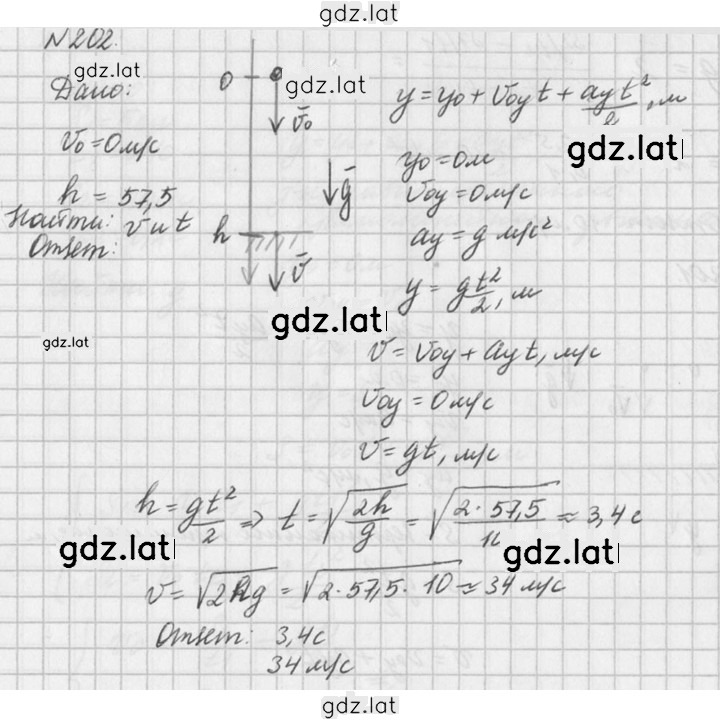 gdz.lat
N202.
gdz.lat
Дано:
v₀ = 0 м/с
h = 57,5
Найти: v и t
Ответ:
gdz.lat
0
gdz.lat
v̄₀
ḡ
h
v̄
gdz.lat
y = y₀ + v₀y t + ay t²/2, м
gdz.lat
y₀ = 0 м
v₀y = 0 м/с
ay = g м/с²
y = gt²/2, м
v = v₀y + ay t, м/с
v₀y = 0 м/с
v = gt, м/с
h = gt²/2 ⇒ t = √(2h/g) = √(2·57,5/10) ≈ 3,4 с
gdz.lat
gdz.lat
v = √(2hg) = √(2·57,5·10) ≈ 34 м/с
Ответ: 3,4 с
34 м/с
gdz.lat